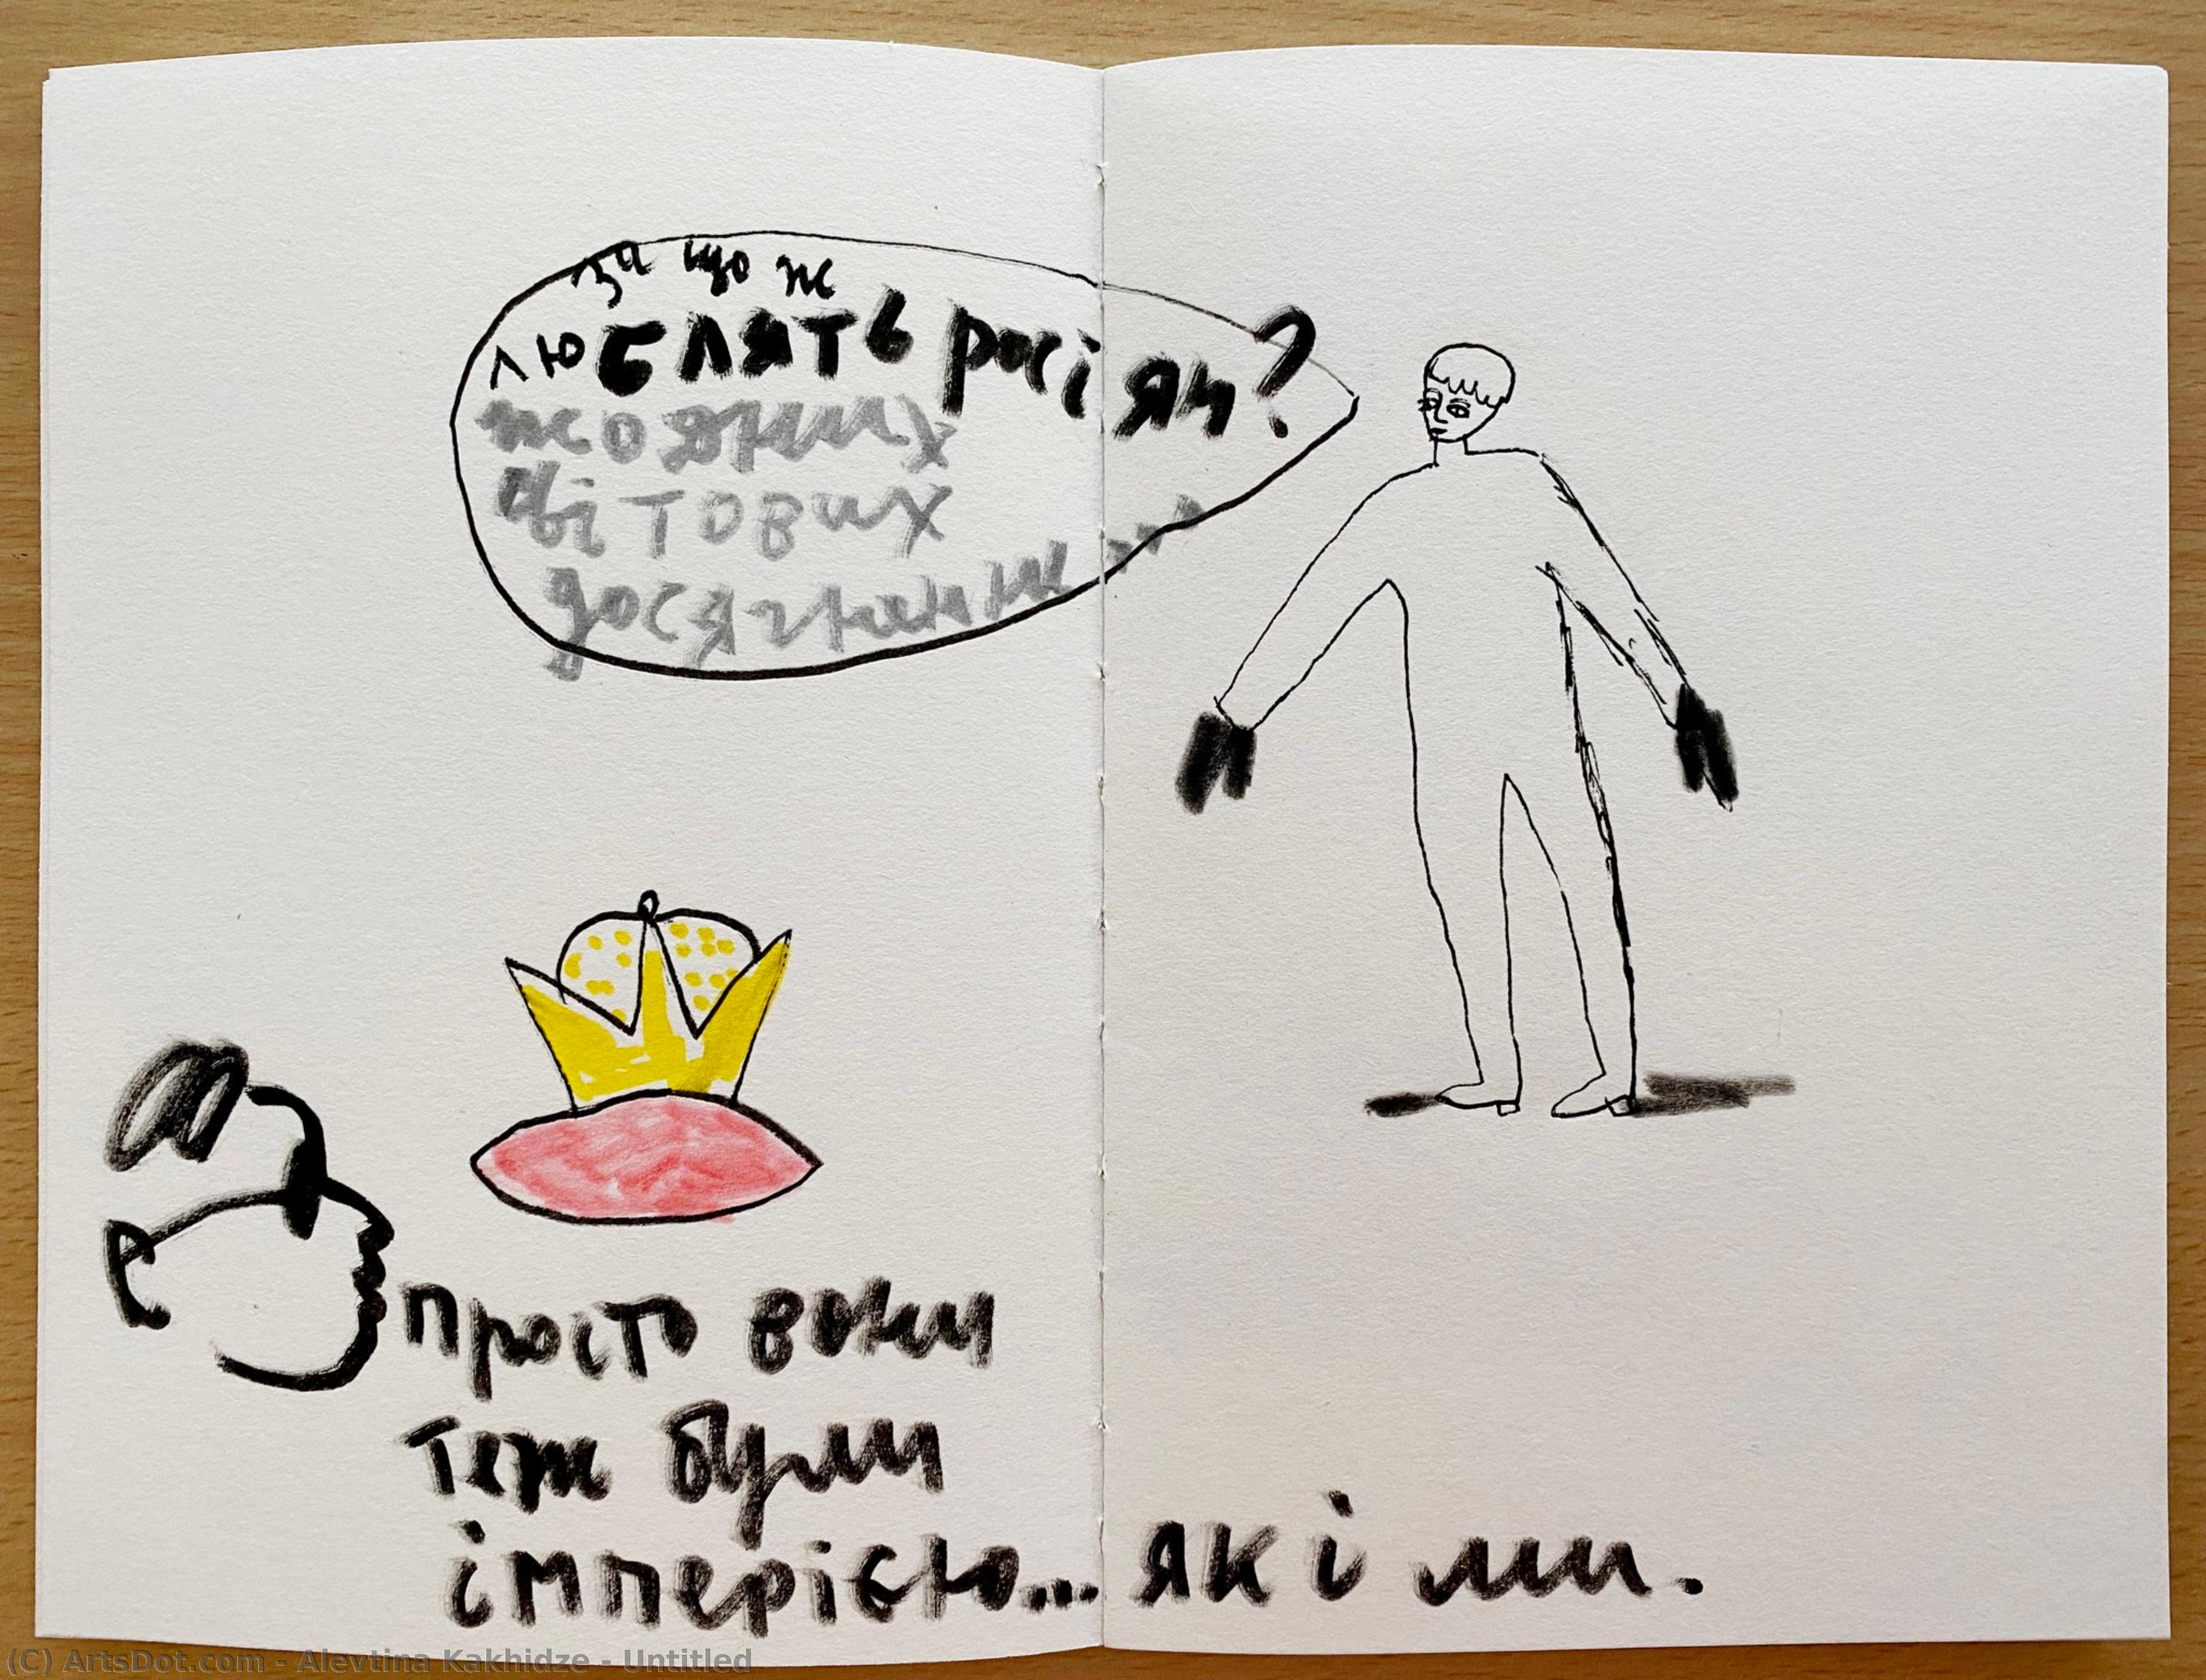 за що ж
люблять росіян?
жодних
світових
досягнень
просто вони
теж були
імперією... які ми.
(C) ArtsDot.com - Alevtina Kakhidze - Untitled